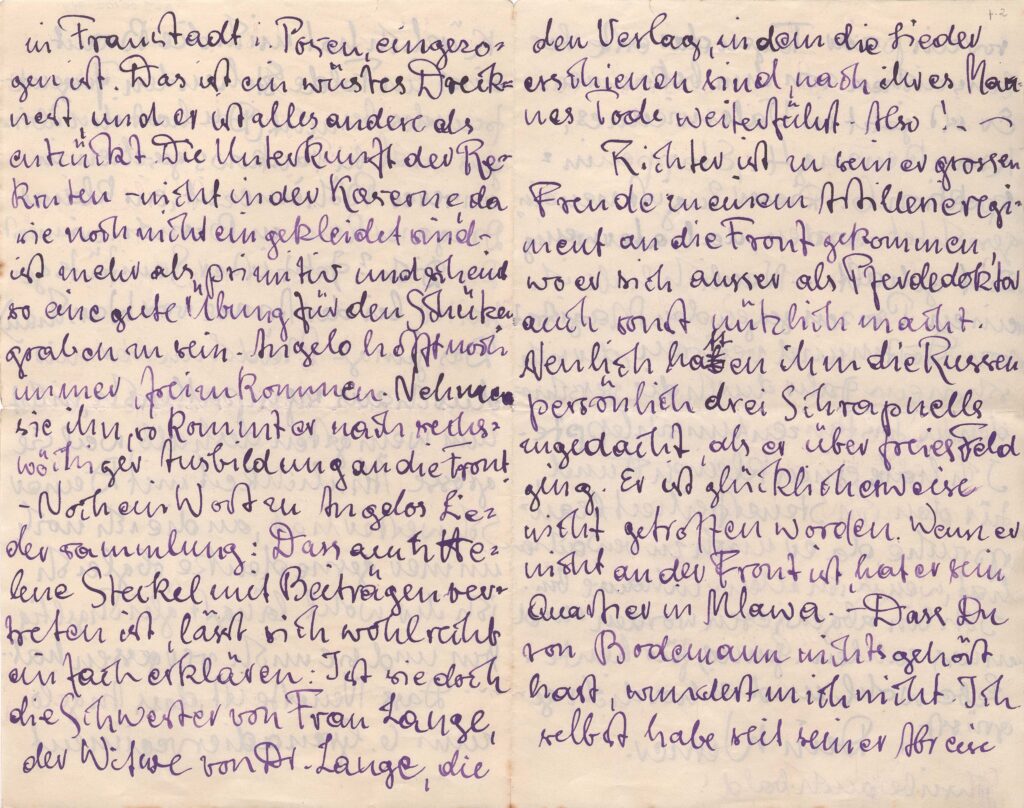 in Fraustadt in Posen, eingezo-
gen ist. Das ist ein wüstes Dreck-
nest, und er ist alles andere als
entzückt. Die Unterkunft der Re-
kruten - nicht in der Kaserne, da
sie noch nicht eingekleidet sind -
ist mehr als primitiv und scheint
so eine gute Übung für den Schützen
graben zu sein. Angelo hofft noch
immer, freizukommen. Nehmen
sie ihn, so kommt er nach sechs-
wöchiger Ausbildung an die Front.
- Noch ein Wort zu Angelos Lie-
dersammlung: Dass auch He-
lene Steckel mit Beiträgen ver-
treten ist, lässt sich wohl recht
einfach erklären: Ist sie doch
die Schwester von Frau Lange,
der Witwe von Dr. Lange, die
den Verlag, in dem die Lieder
erschienen sind, nach ihres Man-
nes Tode weiterführt. Also! . —
Richter ist zu seiner grossen
Freude zu einem Artillerieregi-
ment an die Front gekommen,
wo er sich ausser als Pferdedoktor
auch sonst nützlich macht.
Neulich hatten ihm die Russen
persönlich drei Schrapnells
zugedacht, als er über freies Feld
ging. Er ist glücklicherweise
nicht getroffen worden. Wenn er
nicht an der Front ist, hat er sein
Quartier in Mlawa. - Dass Du
von Bodemann nichts gehört
hast, wundert mich nicht. Ich
selbst habe seit seiner Abreise